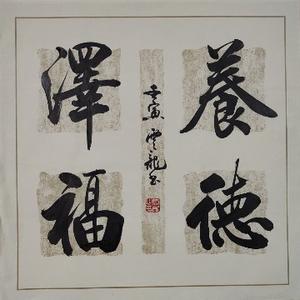 養德
澤福
壬寅 雲龍書